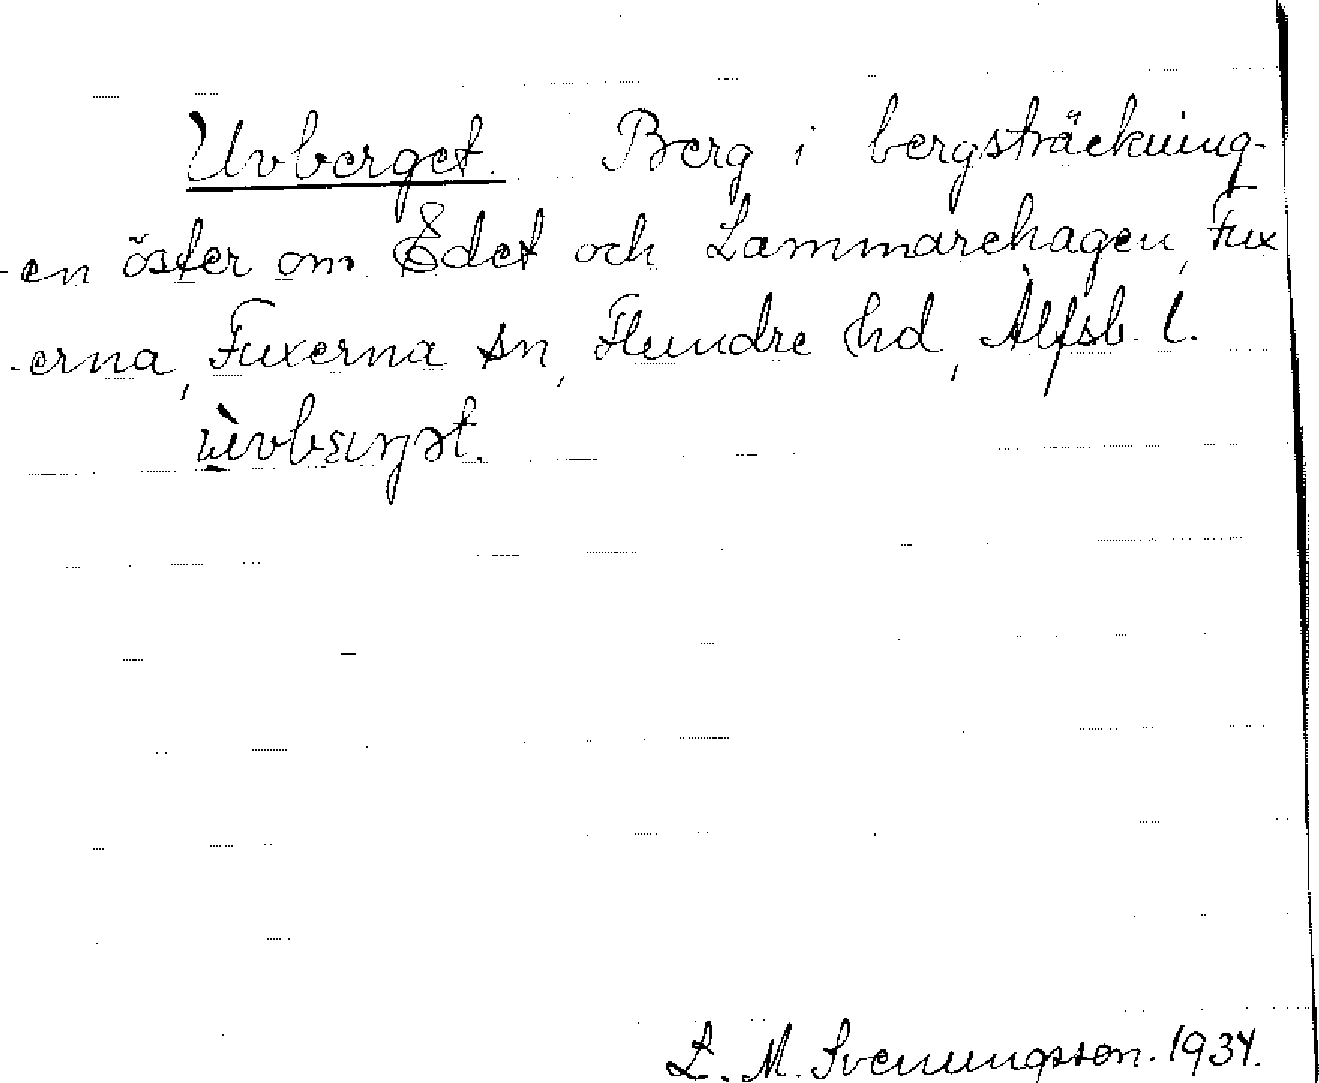 Uvberget. Berg i bergsträckning-
-en öster om Edet och Lammarehagen, Fux
-erna, Fuxerna sn, Flundre hd, Älfsb. l.
L. M. Svenungsson. 1934.